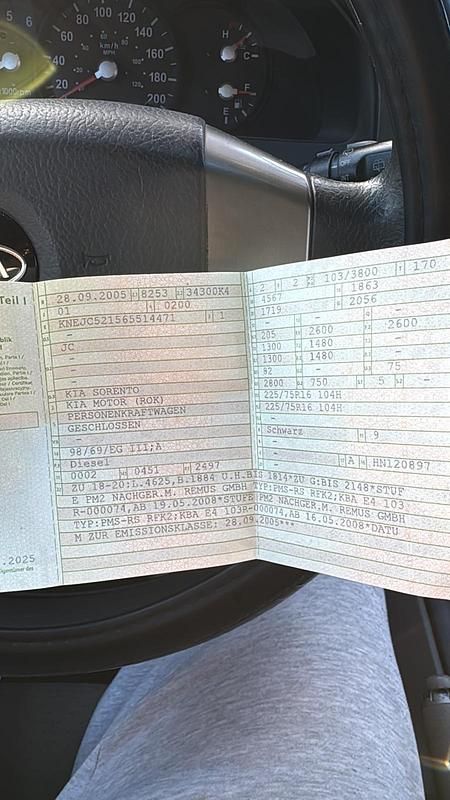 5 6
x1000rpm
20
40
60
80
100
120
140
160
180
200
km/h
MPH
H
C
F
E
OFF
Teil I
28.09.2005 8253 34300K4
01 0200
KNEJC521565514471 1
-
JC
-
-
KIA SORENTO
KIA MOTOR (ROK)
PERSONENKRAFTWAGEN
GESCHLOSSEN
-
98/69/EG III;A
Diesel
0002 0451 2497
2 2 103/3800 170
4567 1863
1719 2056
- -
205 2600 2600
1300 1480 -
1300 1480 -
82 - 75
2800 750 5 -
225/75R16 104H
225/75R16 104H
-
Schwarz 9
-
- A HN120897
ZU 18-20:L.4625,B.1884 U.H.BIS 1814*ZU G:BIS 2148*STUF
E PM2 NACHGER.M. REMUS GMBH TYP:PMS-RS RFK2;KBA E4 103
R-000074,AB 19.05.2008*STUFE PM2 NACHGER.M. REMUS GMBH
TYP:PMS-RS RFK2;KBA E4 103R-000074,AB 16.05.2008*DATU
M ZUR EMISSIONSKLASSE; 28.09.2005***
.2025